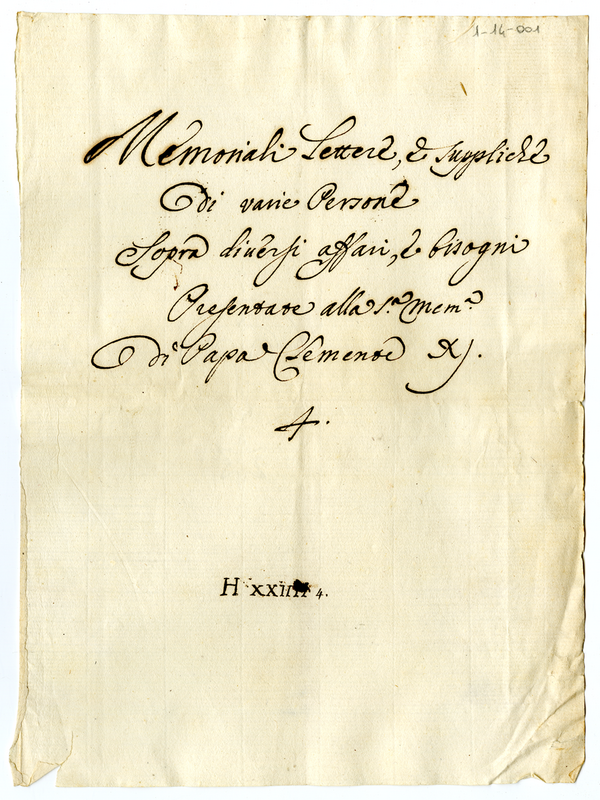 1-14-001
Memoriali Lettere, è suppliche
Di varie Persone
Sopra diversi affari, è bisogni
Presentate alla S.ª Mem.ª
Di Papa Clemente XJ.
4.
H XXIIII 4.